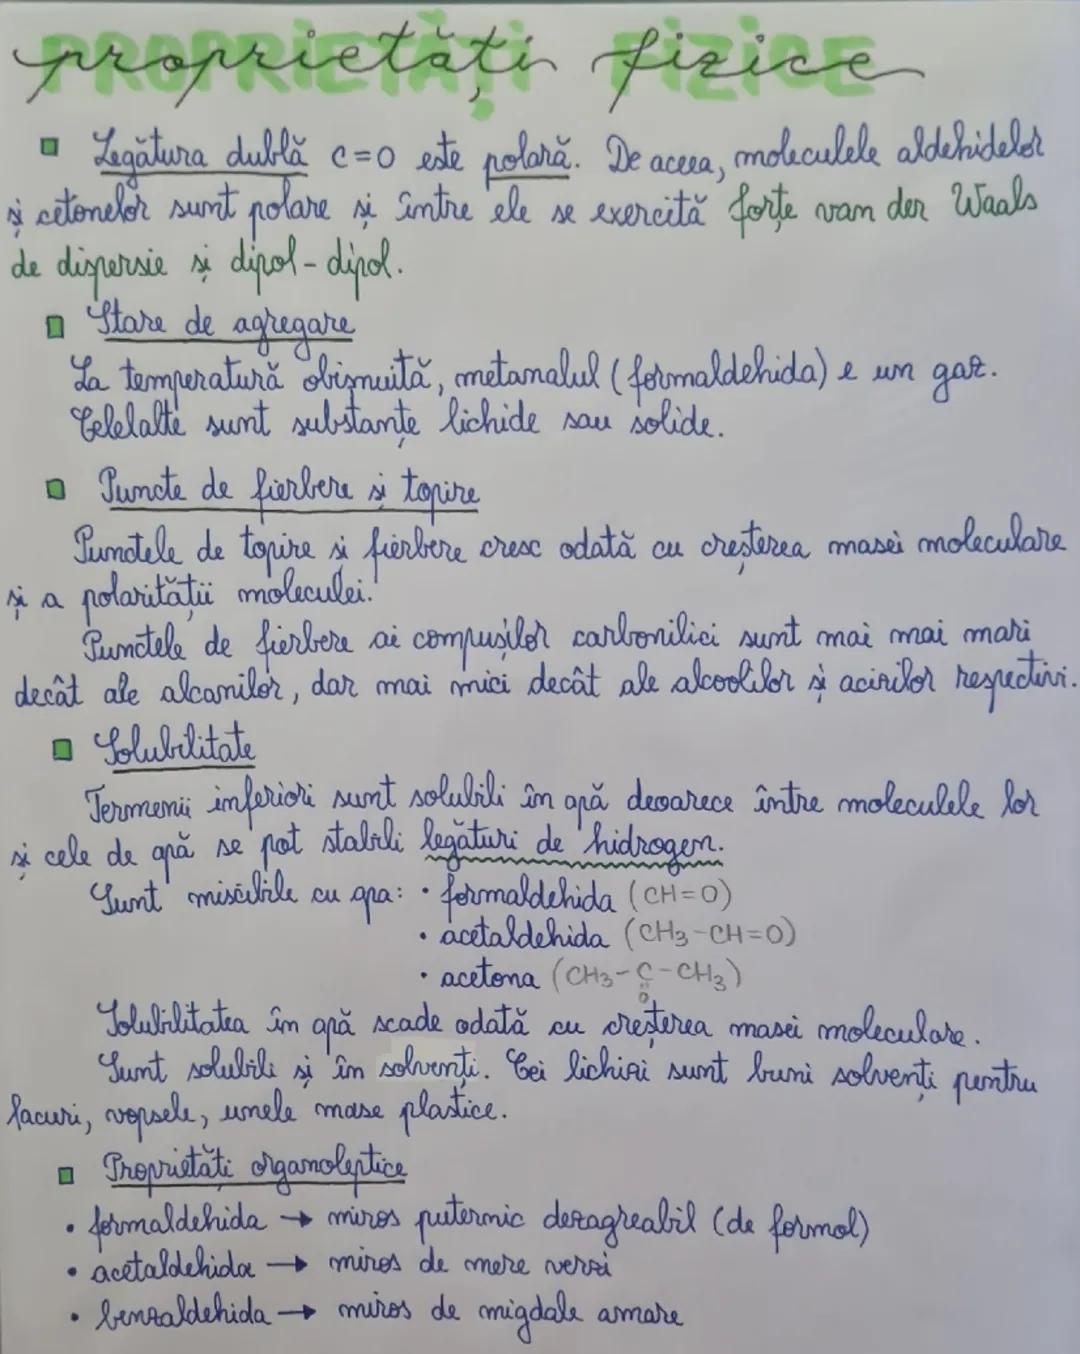 PROPRIETĂȚI FIZICE
proprietăți fizice
Legătura dublă C=O este polară. De aceea, moleculele aldehidelor
și cetonelor sunt polare și între ele se exercită forțe van der Waals
de dispersie și dipol-dipol.
Stare de agregare
La temperatură obișnuită, metanalul (formaldehida) e un gaz.
Celelalte sunt substanțe lichide sau solide.
Puncte de fierbere și topire
Punctele de topire și fierbere cresc odată cu creșterea masei moleculare
și a polarității moleculei.
Punctele de fierbere ai compușilor carbonilici sunt mai mai mari
decât ale alcanilor, dar mai mici decât ale alcoolilor și acizilor respectivi.
Solubilitate
Termenii inferiori sunt solubili în apă deoarece între moleculele lor
și cele de apă se pot stabili legături de hidrogen.
Sunt miscibile cu apa: • formaldehida (CH=O)
• acetaldehida (CH3-CH=O)
• acetona (CH3-C-CH3)
O
Solubilitatea în apă scade odată cu creșterea masei moleculare.
Sunt solubili și în solvenți. Cei lichizi sunt buni solvenți pentru
lacuri, vopsele, unele mase plastice.
Proprietăți organoleptice
• formaldehida → miros puternic dezagreabil (de formol)
• acetaldehida → miros de mere verzi
• benzaldehida → miros de migdale amare